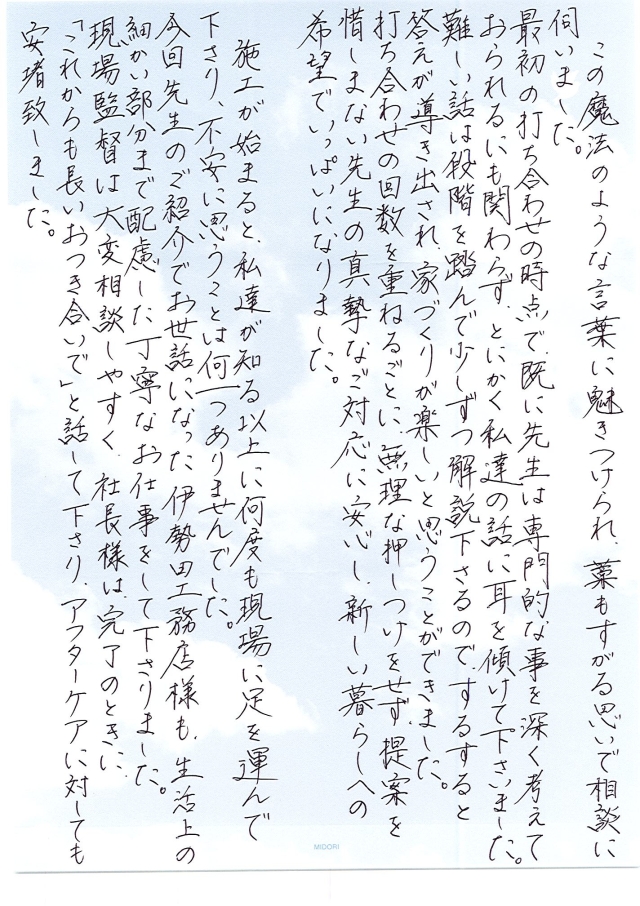 この魔法のような言葉に魅きつけられ、藁もすがる思いで相談に
伺いました。
最初の打ち合わせの時点で、既に先生は専門的な事を深く考えて
おられるにも関わらず、とにかく私達の話に耳を傾けて下さいました。
難しい話は段階を踏んで少しずつ解説下さるので、するすると
答えが導き出され、家づくりが楽しいと思うことができました。
打ち合わせの回数を重ねるごとに、無理な押しつけをせず、提案を
惜しまない先生の真摯なご対応に安心し、新しい暮らしへの
希望でいっぱいになりました。
施工が始まると、私達が知る以上に何度も現場に足を運んで
下さり、不安に思うことは何一つありませんでした。
今回先生のご紹介でお世話になった伊勢田工務店様も、生活上の
細かい部分まで配慮した丁寧なお仕事をして下さりました。
現場監督は大変相談しやすく、社長様は、完了のときに、
「これからも長いおつき合いで」と話して下さり、アフターケアに対しても
安堵致しました。
MIDORI